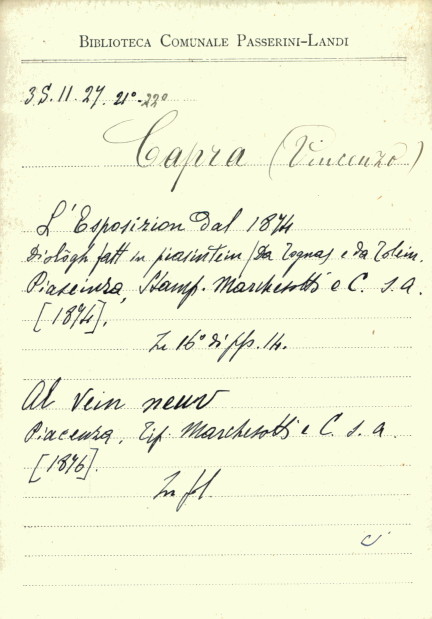 BIBLIOTECA COMUNALE PASSERINI-LANDI
3S.11.27. 21º-22º
Capra (Vincenzo)
L'Esposizion dal 1874
Diológh fatt in piasintein/Da Tognas e da Tolein.
Piaseinza, Stamp. Marchesotti e C. s.a.
[1874].
In 16º di pp. 14.
Al vein neuv
Piacenza, Tip. Marchesotti e C. s.a.
[1876].
In fol.